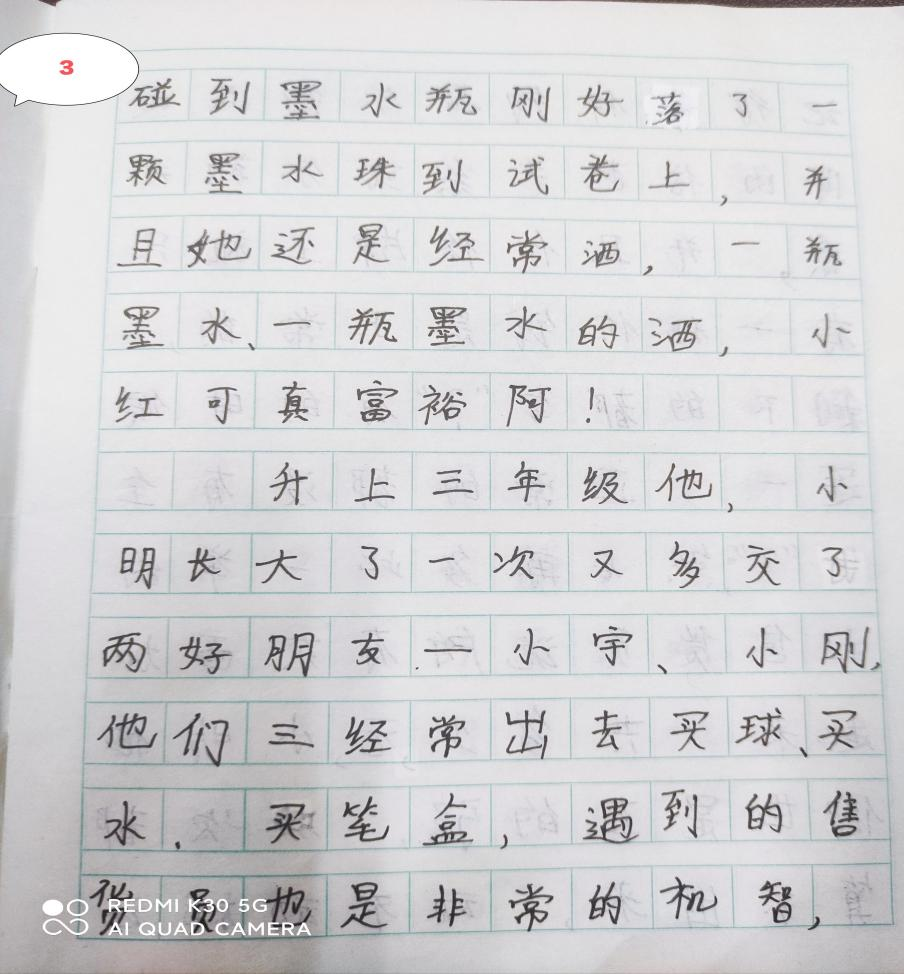 3
碰到墨水瓶刚好落了一
颗墨水珠到试卷上，并
且她还是经常洒，一瓶
墨水、一瓶墨水的洒，小
红可真富裕阿！
升上三年级他，小
明长大了一次又多交了
两好朋友一小宇、小刚，
他们三经常出去买球、买
水、买笔盒，遇到的售
货员也是非常的机智，
REDMI K30 5G
AI QUAD CAMERA